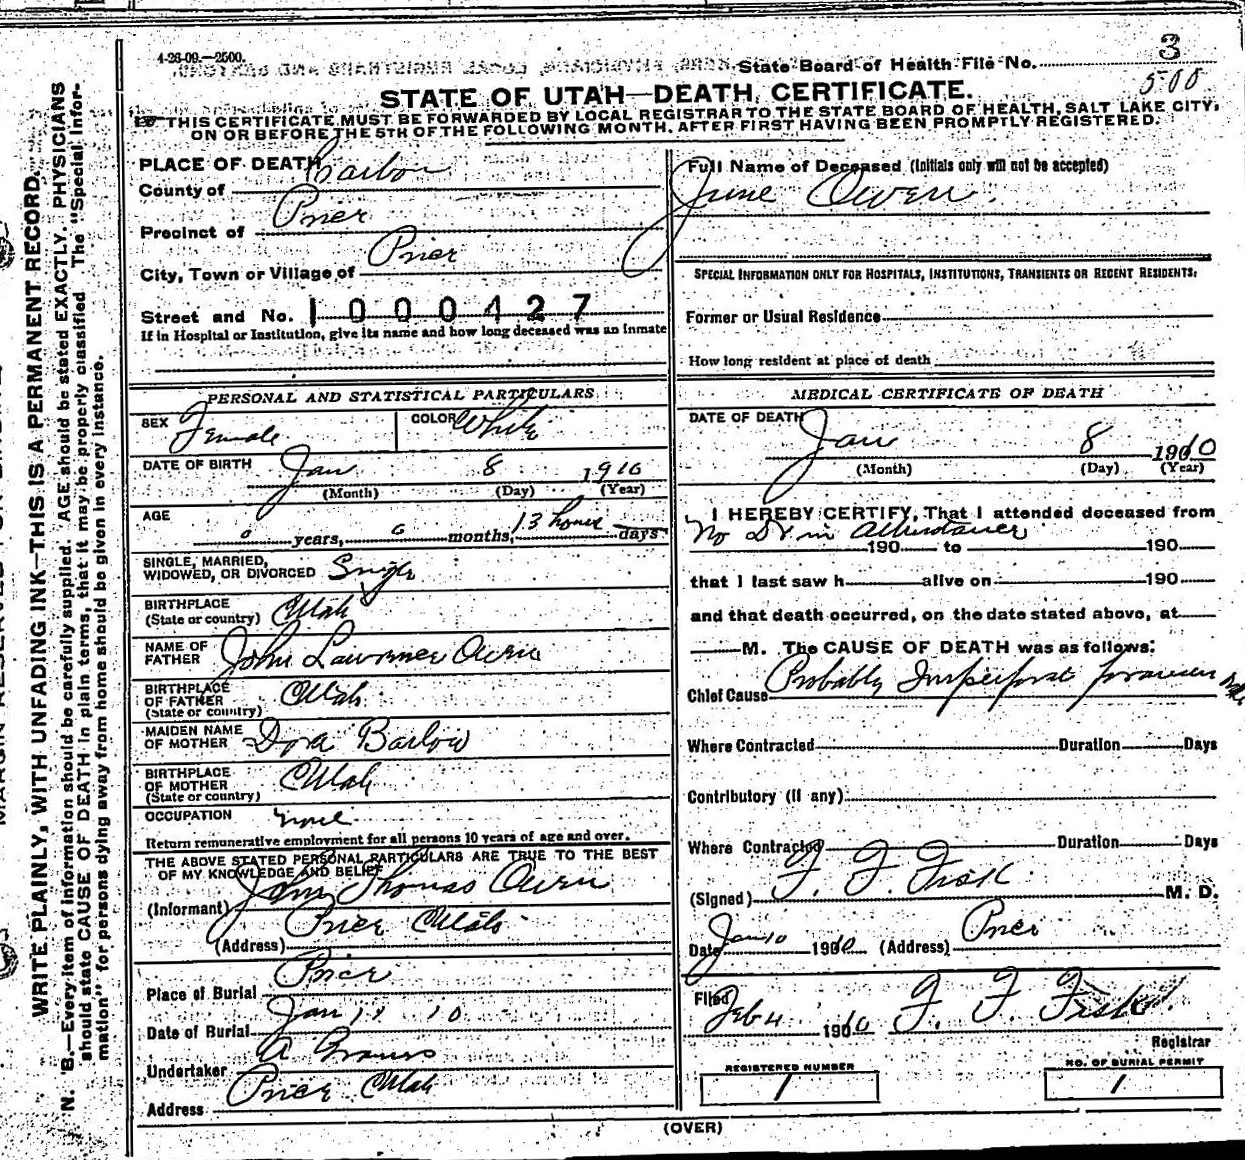 4-26-09.—2500.
State Board of Health File No. 3
500
STATE OF UTAH—DEATH CERTIFICATE.
THIS CERTIFICATE MUST BE FORWARDED BY LOCAL REGISTRAR TO THE STATE BOARD OF HEALTH, SALT LAKE CITY,
ON OR BEFORE THE 5TH OF THE FOLLOWING MONTH, AFTER FIRST HAVING BEEN PROMPTLY REGISTERED.
WRITE PLAINLY, WITH UNFADING INK—THIS IS A PERMANENT RECORD.
N. B.—Every item of information should be carefully supplied. AGE should be stated EXACTLY. PHYSICIANS
should state CAUSE OF DEATH in plain terms, that it may be properly classified The "Special Infor-
mation" for persons dying away from home should be given in every instance.
PLACE OF DEATH
County of Carbon
Precinct of Price
City, Town or Village of Price
Street and No. 1000427
If in Hospital or Institution, give its name and how long deceased was an inmate
PERSONAL AND STATISTICAL PARTICULARS
SEX Female COLOR White
DATE OF BIRTH Jan 8 1910
(Month) (Day) (Year)
AGE 0 years, 0 months, 13 hours days
SINGLE, MARRIED,
WIDOWED, OR DIVORCED Single
BIRTHPLACE
(State or country) Utah
NAME OF
FATHER John Lawrence Owen
BIRTHPLACE
OF FATHER
(State or country) Utah
MAIDEN NAME
OF MOTHER Dora Barlow
BIRTHPLACE
OF MOTHER
(State or country) Utah
OCCUPATION None
Return remunerative employment for all persons 10 years of age and over.
THE ABOVE STATED PERSONAL PARTICULARS ARE TRUE TO THE BEST
OF MY KNOWLEDGE AND BELIEF
(Informant) John Thomas Owen
(Address) Price Utah
Place of Burial Price
Date of Burial Jan 11 10
Undertaker A
Address Price Utah
Full Name of Deceased (Initials only will not be accepted)
June Owen
SPECIAL INFORMATION ONLY FOR HOSPITALS, INSTITUTIONS, TRANSIENTS OR RECENT RESIDENTS:
Former or Usual Residence
How long resident at place of death
MEDICAL CERTIFICATE OF DEATH
DATE OF DEATH
Jan 8 1910
(Month) (Day) (Year)
I HEREBY CERTIFY, That I attended deceased from
No Dr in Attendance
190 to 190
that I last saw h alive on 190
and that death occurred, on the date stated above, at
M. The CAUSE OF DEATH was as follows:
Chief Cause Probably Imperforat foramen
Where Contracted Duration Days
Contributory (if any)
Where Contracted Duration Days
(Signed) F. F. Fisk M. D.
Date Jan 10 1910 (Address) Price
Filed Feb 4 1910 F. F. Fisk
Registrar
REGISTERED NUMBER
1
NO. OF BURIAL PERMIT
1
(OVER)